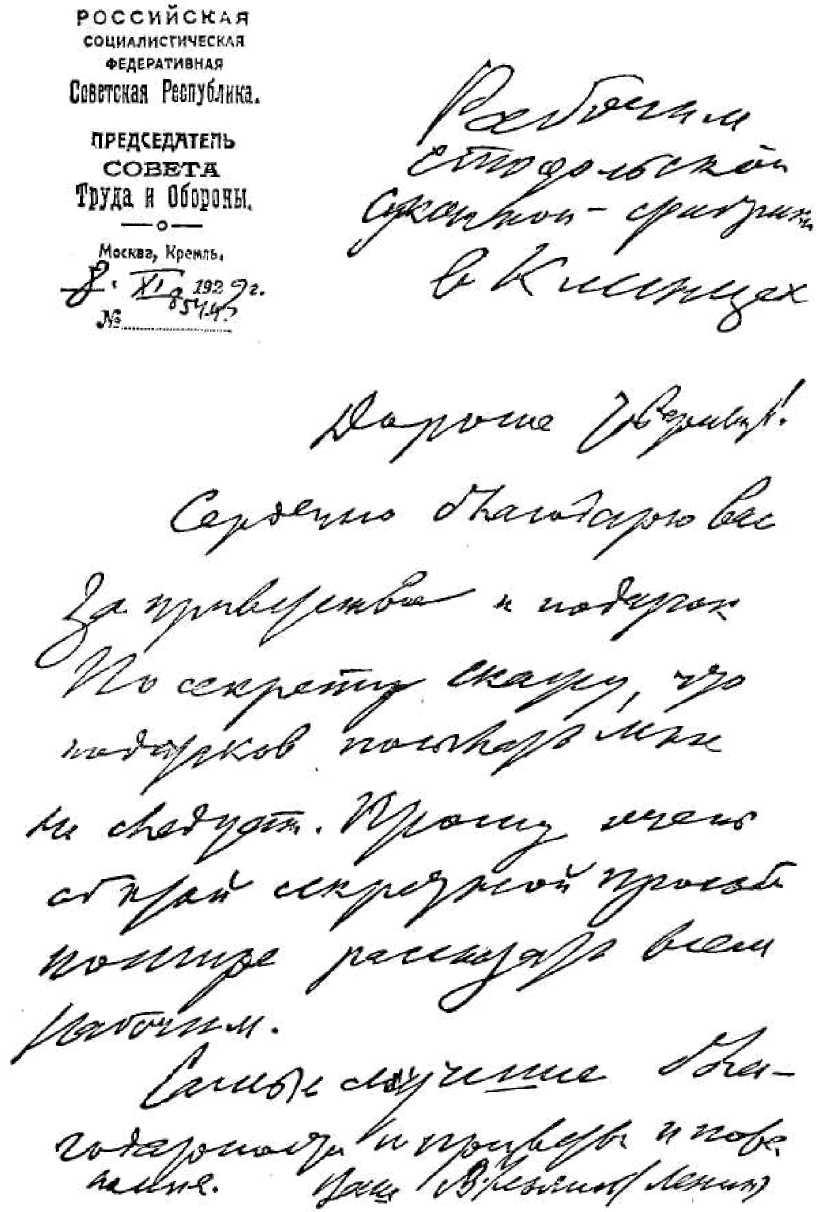 РОССИЙСКАЯ
СОЦИАЛИСТИЧЕСКАЯ
ФЕДЕРАТИВНАЯ
Советская Республика.
ПРЕДСЕДАТЕЛЬ
СОВЕТА
Труда и Обороны.
Москва, Кремль.
8. XI 192 г.
№
Рабочим
стодольской
суконной фабрики
в Клинцах
Дорогие товарищи!
Сердечно благодарю вас
за приветствие и подарок
По секрету скажу, что
подарков посылать мне
не следует. Прошу очень
об этой секретной просьбе
пошире рассказать всем
рабочим.
Самые лучшие бла-
годарности и приветы и поже
лания. Ваш В. Ульянов (Ленин)